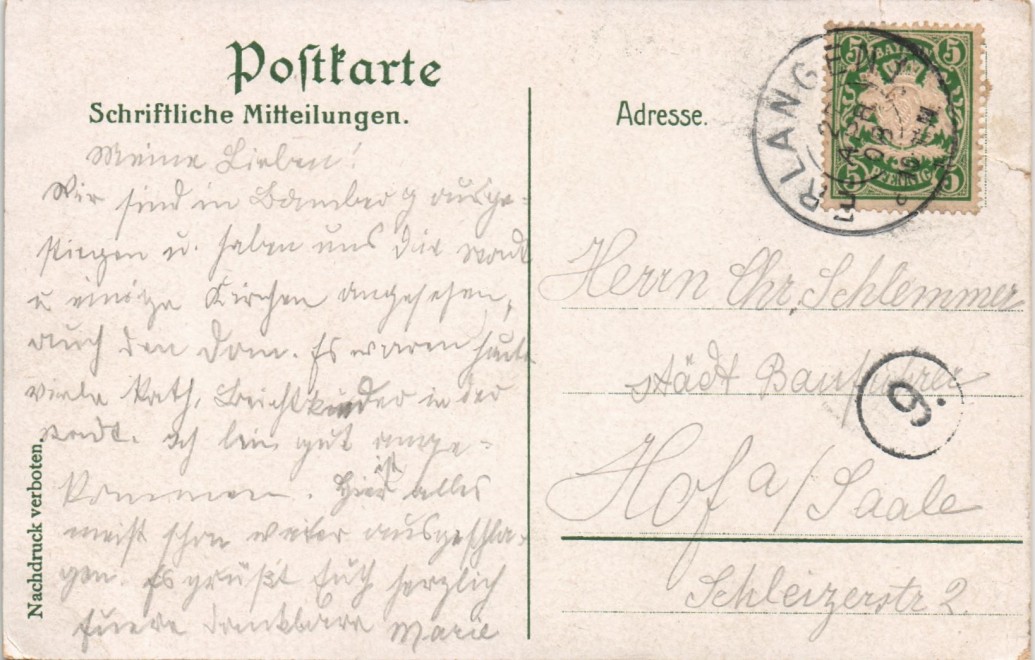 Postkarte
Schriftliche Mitteilungen.
Meine Lieben!
Wir sind in Bamberg ausge-
stiegen u. haben uns die Stadt
u einige Kirchen angesehen,
auch den Dom. Es waren heute
viele Kath. Beichtkinder in der
Stadt. Ich bin gut ange-
kommen. Hier ist alles
meist schon weiter ausgeschla-
gen. Es grüßt Euch herzlich
Euere dankbare Marie
Nachdruck verboten.
Adresse.
ERLANGEN 1
2
08
BAYERN
5 5
5 5
PFENNIG
Herrn Chr. Schlemmer
städt Bauführer
Hof a/Saale
Schleizerstr 2.
9.